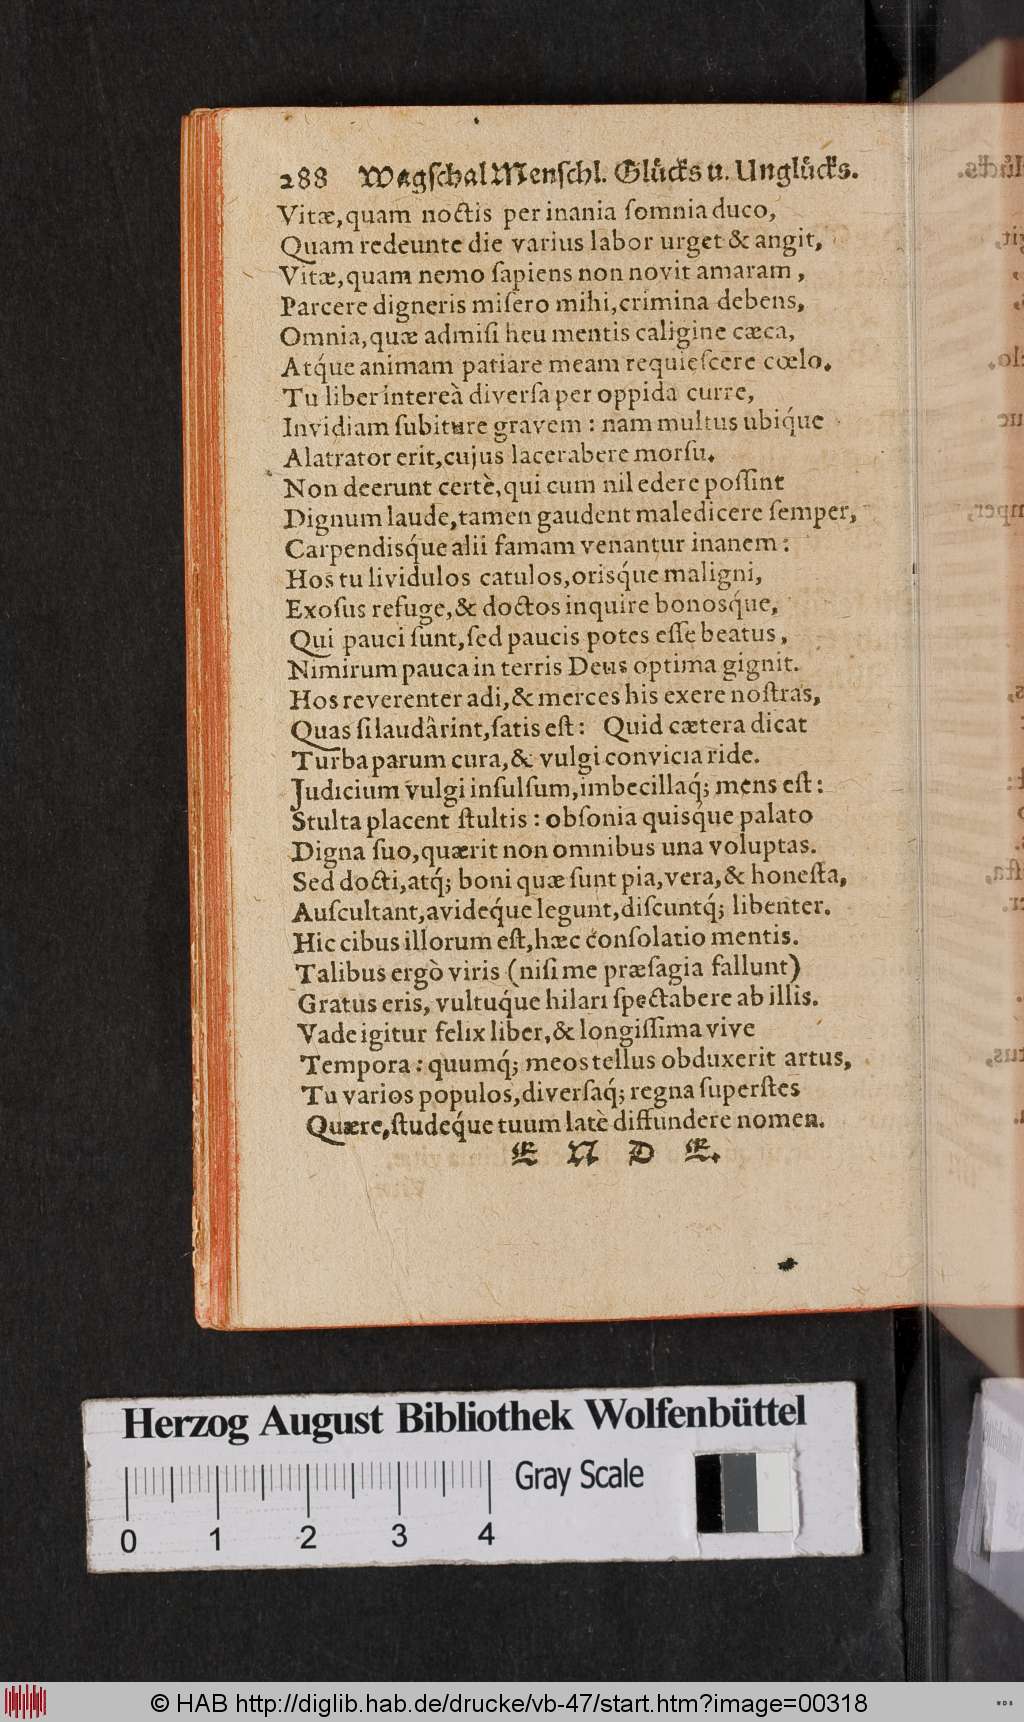 288 Wagſchal Menſchl. Gluͤcks u. Ungluͤcks.
Vitæ, quam noctis per inania ſomnia duco,
Quam redeunte die varius labor urget & angit,
Vitæ, quam nemo ſapiens non novit amaram,
Parcere digneris miſero mihi, crimina debens,
Omnia, quæ admiſi heu mentis caligine cæca,
Atq́ue animam patiare meam requieſcere cœlo.
Tu liber intereà diverſa per oppida curre,
Invidiam ſubiture gravem : nam multus ubiq́ue
Alatrator erit, cujus lacerabere morſu.
Non deerunt certè, qui cum nil edere poſſint
Dignum laude, tamen gaudent maledicere ſemper,
Carpendisq́ue alii famam venantur inanem :
Hos tu lividulos catulos, orisq́ue maligni,
Exoſus refuge, & doctos inquire bonosq́ue,
Qui pauci ſunt, ſed paucis potes eſſe beatus,
Nimirum pauca in terris Deus optima gignit.
Hos reverenter adi, & merces his exere noſtras,
Quas ſi laudârint, ſatis eſt : Quid cætera dicat
Turba parum cura, & vulgi convicia ride.
Judicium vulgi inſulſum, imbecillaq́; mens eſt :
Stulta placent ſtultis : obſonia quisq́ue palato
Digna ſuo, quærit non omnibus una voluptas.
Sed docti, atq́; boni quæ ſunt pia, vera, & honeſta,
Auſcultant, avideq́ue legunt, diſcuntq́; libenter.
Hic cibus illorum eſt, hæc conſolatio mentis.
Talibus ergò viris (niſi me præſagia fallunt)
Gratus eris, vultuq́ue hilari ſpectabere ab illis.
Vade igitur felix liber, & longiſſima vive
Tempora : quumq́; meos tellus obduxerit artus,
Tu varios populos, diverſaq́; regna ſuperſtes
Quære, ſtudeq́ue tuum latè diffundere nomen.
E N D E.
Herzog August Bibliothek Wolfenbüttel
Gray Scale
0 1 2 3 4
© HAB http://diglib.hab.de/drucke/vb-47/start.htm?image=00318